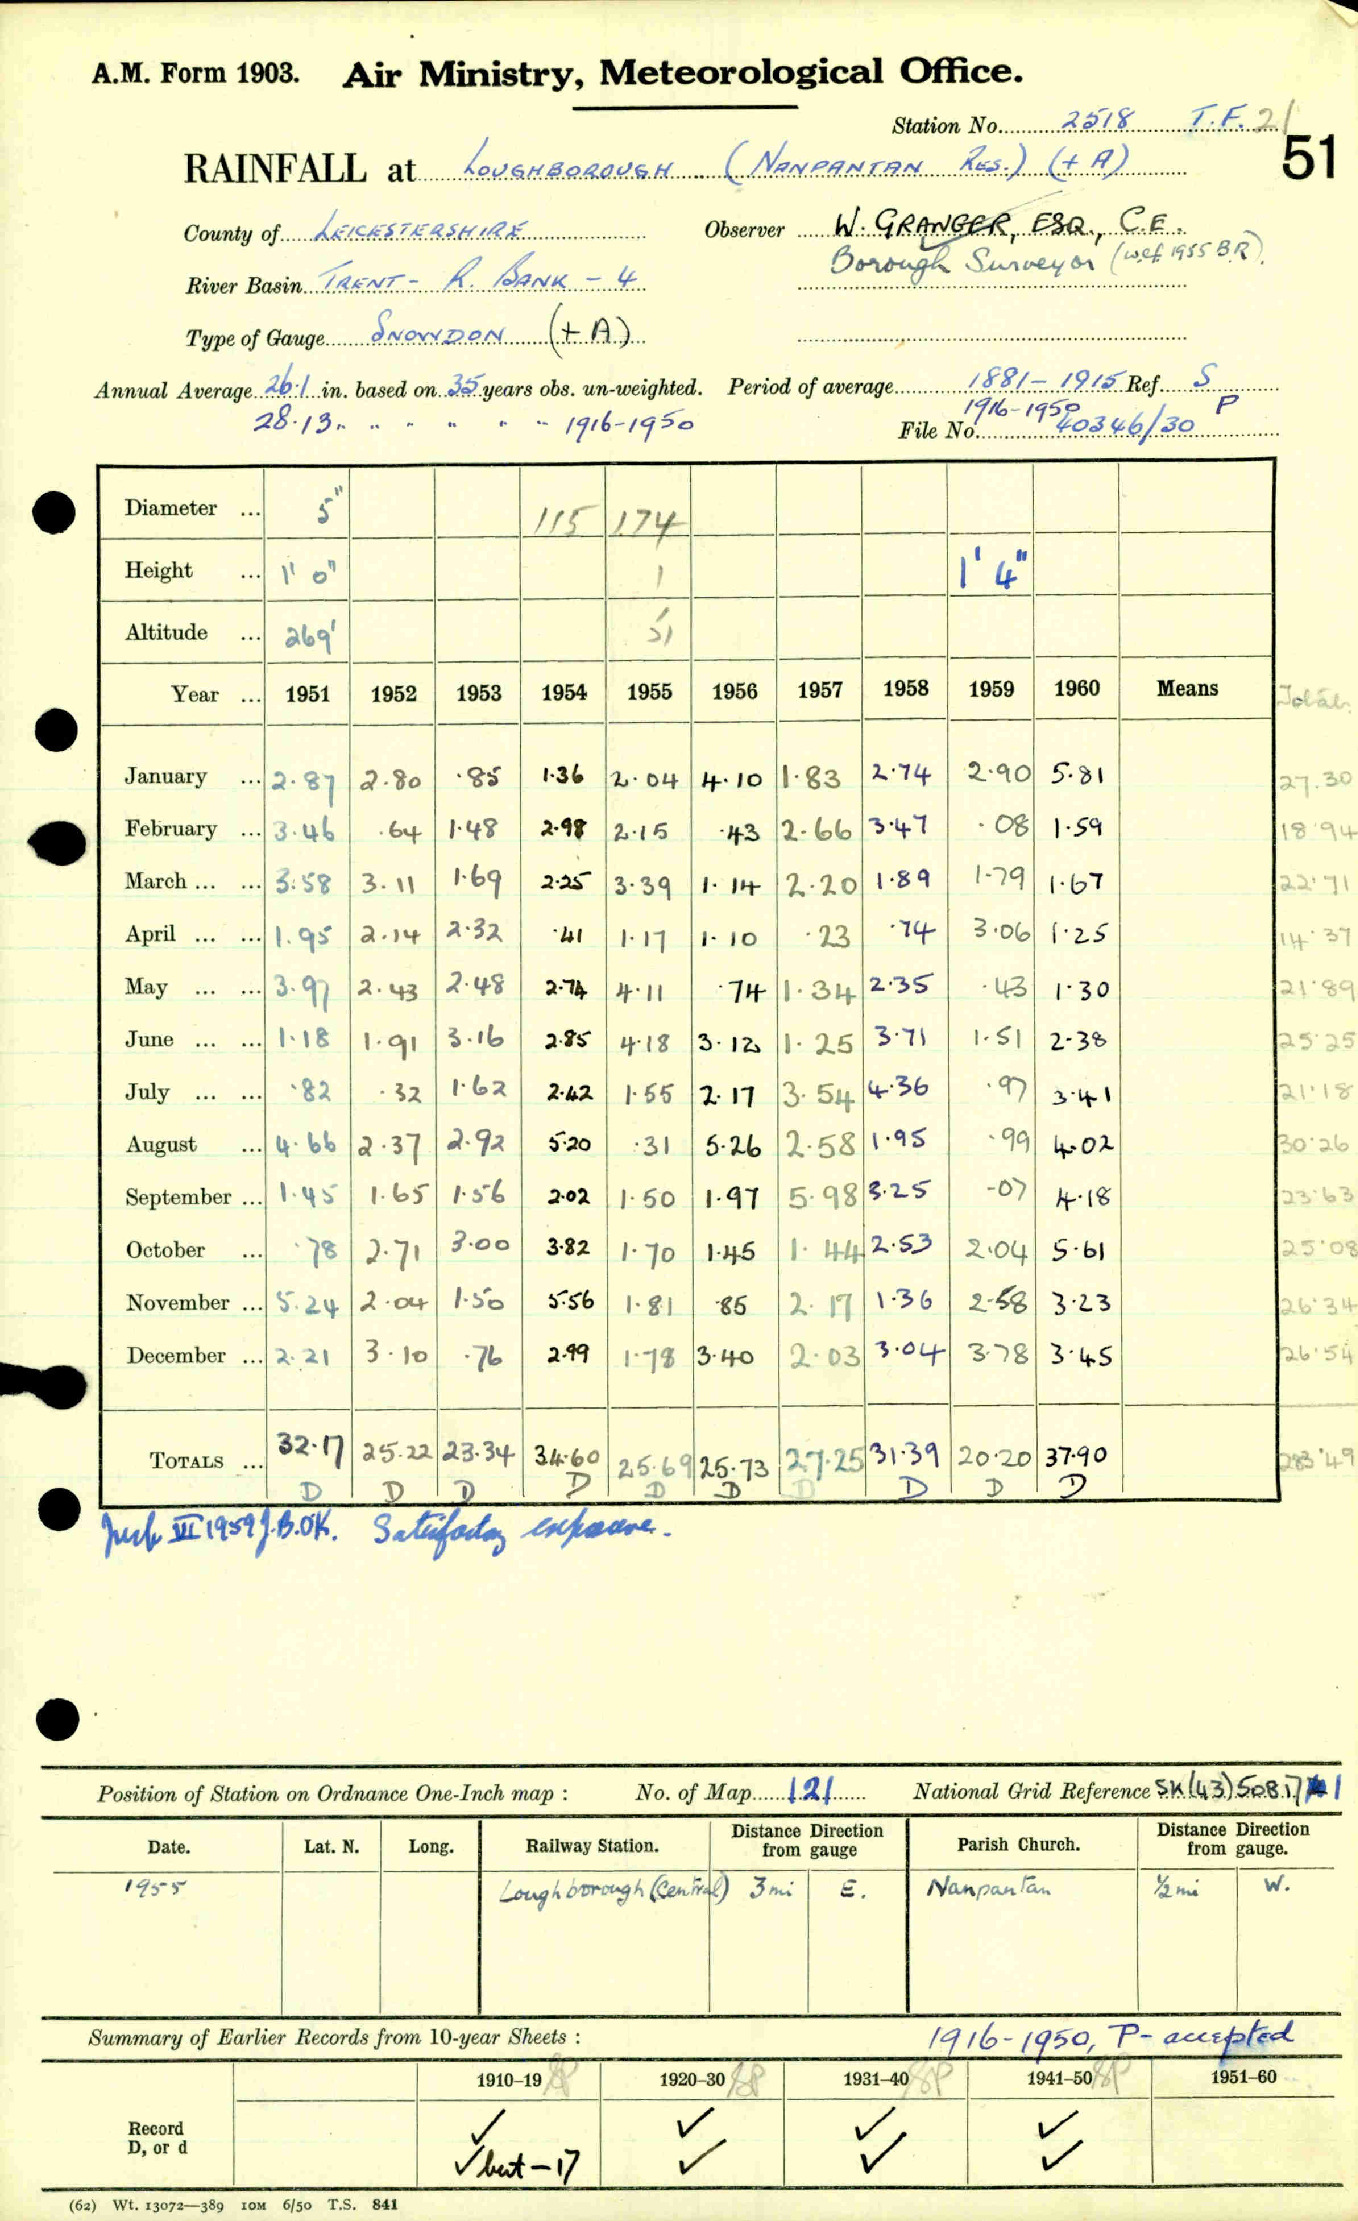 A.M. Form 1903. Air Ministry, Meteorological Office.
Station No. 2518 T.F. 21
51
RAINFALL at LOUGHBOROUGH (NANPANTAN RES.) (+ A)
County of LEICESTERSHIRE Observer W. GRANGER, ESQ., C.E.
Borough Surveyor (w.e.f. 1955 B.R).
River Basin TRENT - R. BANK - 4
Type of Gauge SNOWDON (+ A)
Annual Average 26.1 in. based on 35 years obs. un-weighted. Period of average 1881 - 1915 Ref. S
28.13 " " " " " " 1916-1950 1916-1950 P
File No. 40346/30
Diameter ... 5" 115 174
Height ... 1' 0" 1 1' 4"
Altitude ... 269' 51
Year ... 1951 1952 1953 1954 1955 1956 1957 1958 1959 1960 Means Totals
January ... 2.87 2.80 .85 1.36 2.04 4.10 1.83 2.74 2.90 5.81 27.30
February ... 3.46 .64 1.48 2.98 2.15 .43 2.66 3.47 .08 1.59 18.94
March ... ... 3.58 3.11 1.69 2.25 3.39 1.14 2.20 1.89 1.79 1.67 22.71
April ... ... 1.95 2.14 2.32 .41 1.17 1.10 .23 .74 3.06 1.25 14.37
May ... ... 3.97 2.43 2.48 2.74 4.11 .74 1.34 2.35 .43 1.30 21.89
June ... ... 1.18 1.91 3.16 2.85 4.18 3.12 1.25 3.71 1.51 2.38 25.25
July ... ... .82 .32 1.62 2.42 1.55 2.17 3.54 4.36 .97 3.41 21.18
August ... 4.66 2.37 2.92 5.20 .31 5.26 2.58 1.95 .99 4.02 30.26
September ... 1.45 1.65 1.56 2.02 1.50 1.97 5.98 3.25 .07 4.18 23.63
October ... .78 2.71 3.00 3.82 1.70 1.45 1.44 2.53 2.04 5.61 25.08
November ... 5.24 2.04 1.50 5.56 1.81 .85 2.17 1.36 2.58 3.23 26.34
December ... 2.21 3.10 .76 2.99 1.78 3.40 2.03 3.04 3.78 3.45 26.54
TOTALS ... 32.17 25.22 23.34 34.60 25.69 25.73 27.25 31.39 20.20 37.90 283.49
D D D D D D D D D D
VI 1959 J.B.O'K. Satisfactory exposure.
Position of Station on Ordnance One-Inch map : No. of Map 121 National Grid Reference SK(43)508171
Date. Lat. N. Long. Railway Station. Distance Direction from gauge Parish Church. Distance Direction from gauge.
1955 Loughborough (Central) 3 mi E. Nanpantan ½ mi W.
Summary of Earlier Records from 10-year Sheets : 1916-1950, P- accepted
1910-19 1920-30 1931-40 1941-50 1951-60
Record ✓ ✓ ✓ ✓
D, or d ✓ but -17 ✓ ✓ ✓
(62) Wt. 13072—389 10M 6/50 T.S. 841